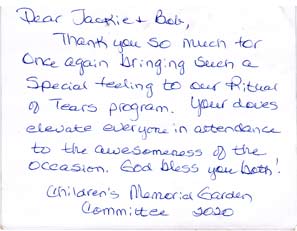 Dear Jackie + Bob,
Thank you so much for
Once again bringing such a
Special feeling to our Ritual
of Tears program. Your doves
elevate everyone in attendance
to the awesomeness of the
occasion. God bless you both!
Children's Memorial Garden
Committee 2020